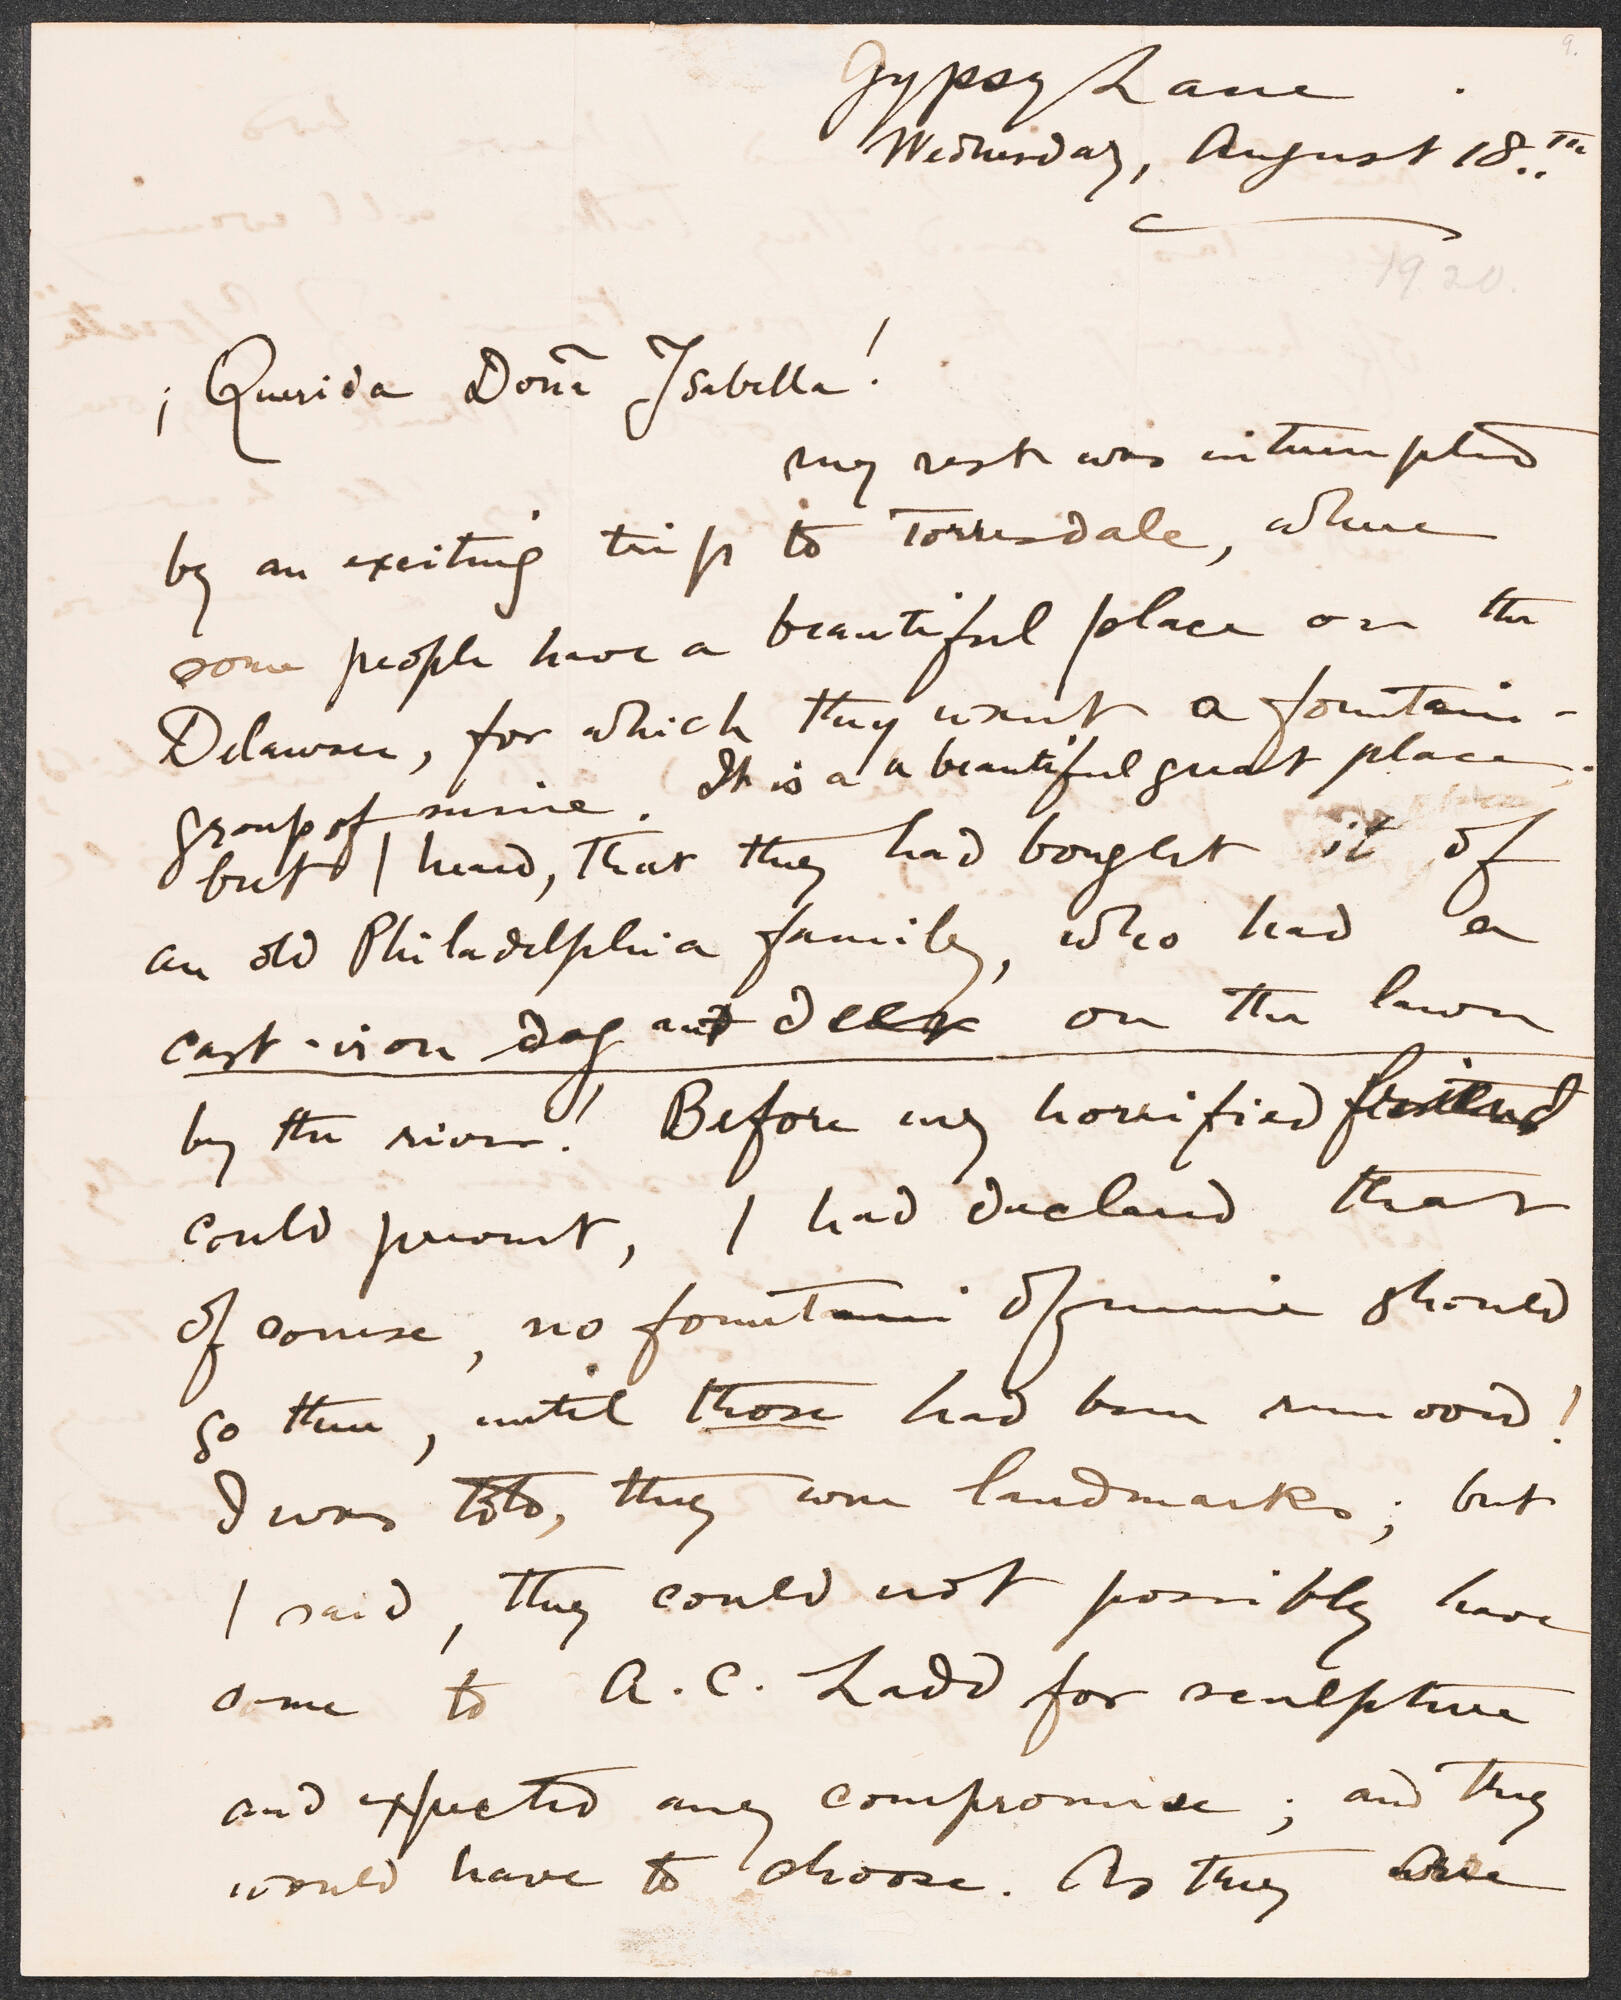 9.
Gypsy Lane.
Wednesday, August 18..th
1920.
¡Querida Doña Isabella!
my rest was interrupted
by an exciting trip to Torresdale, where
some people have a beautiful place on the
Delaware, for which they want a fountain-
group of mine. It is a a beautiful great place,
but I heard, that they had bought it of
an old Philadelphia family, who had a
cast-iron dog and deer on the lawn
by the river! Before my horrified friend
could prevent, I had declared that
of course, no fountain of mine should
go there, until those had been removed!
I was told, they were landmarks; but
I said, they could not possibly have
come to A. C. Ladd for sculpture
and expected any compromise; and they
would have to choose. As they are